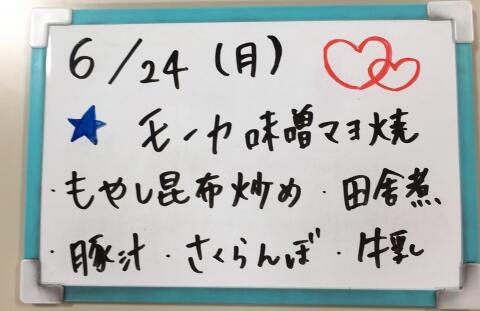 6/24(月)
★ モーカ味噌マヨ焼
・もやし昆布炒め・田舎煮
・豚汁・さくらんぼ・牛乳